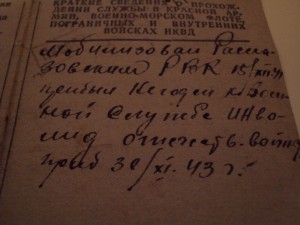 КРАТКИЕ СВЕДЕНИЯ О ПРОХОЖ-
ДЕНИИ СЛУЖБЫ В КРАСНОЙ АР-
МИИ, ВОЕННО-МОРСКОМ ФЛОТЕ,
ПОГРАНИЧНЫХ И ВНУТРЕННИХ
ВОЙСКАХ НКВД
Мобилизован Расска-
зовским РВК 15/XII
негоден к воен-
ной службе инва-
лид отечест. войны
30/XI-43 г.